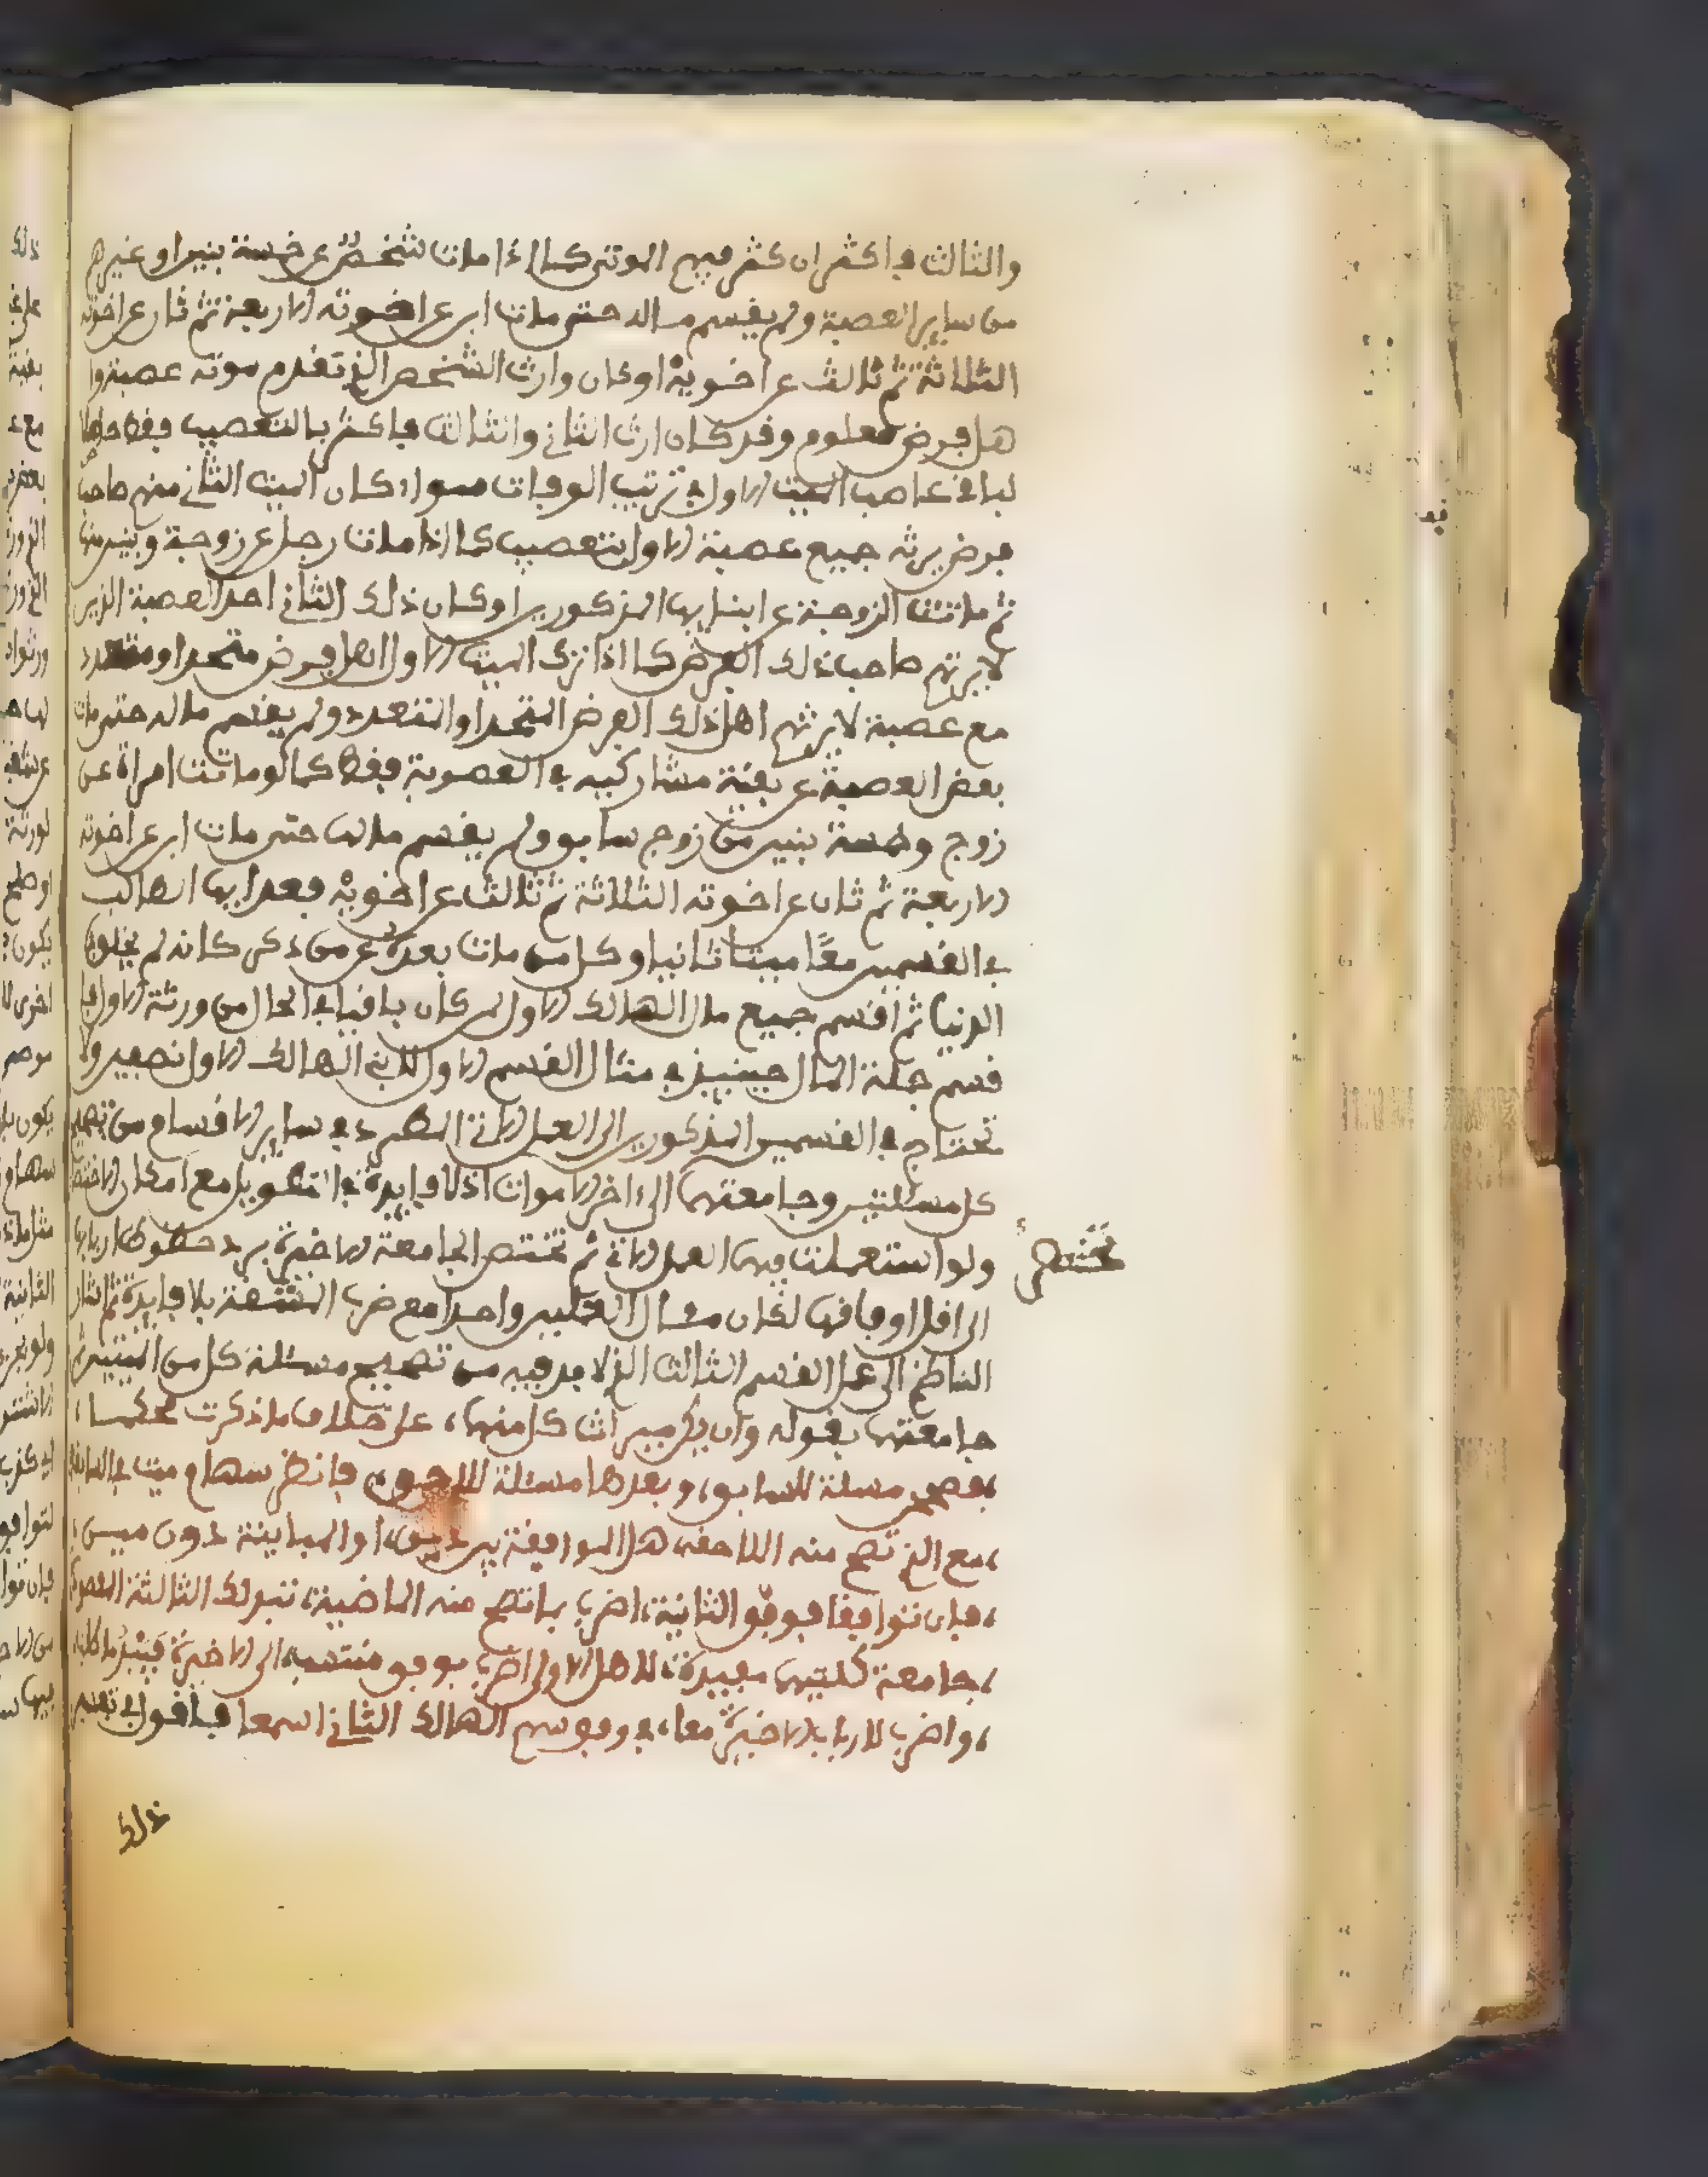 والثالث فاكثر ان كثر فيهم الموتى كما اذا مات شخص عن خمسة بنين او غيرهم
من ساير العصبة ولم يقسم ماله حتى مات ابن عن اخوته الاربعة ثم ثان عن اخوته
الثلاثة ثم ثالث عن اخويه او كان وارث الشخص الذي تقدم موته عصبة وا
هل فرض معلوم وقد كان ارث الثاني والثالث فاكثر بالتعصيب فقط حاصلا
لباقي عاصب الميت الاول في ترتيب الوفيات سوا كان الميت الثاني منهم صاحب
فرض يرثه جميع عصبة الاول بتعصيب كما اذا مات رجل عن زوجة وبنين منها
ثم ماتت الزوجة عن ابنايها المذكورين او كان ذلك الثاني احد العصبة الذين
لا يرثهم صاحب ذلك الفرض كما اذا ترك الميت الاول اهل فرض متحد او متعدد
مع عصبة لا يرثهم اهل ذلك الفرض المتحد او المتعدد ولم يقسم ماله حتى مات
بعض العصبة عن بقية مشاركيه في العصوبة فقط كما لو ماتت امراة عن
زوج وخمسة بنين من زوج سابق ولم يقسم مالها حتى مات ابن عن اخوته
الاربعة ثم ثان عن اخوته الثلاثة ثم ثالث عن اخويه فعد ايها الطالب
في القسمين معًا ميتا ثانيا وكل من مات بعده عن من ذكر كانه لم يخلق في
الدنيا ثم اقسم جميع مال الهالك الاول لمن كان باقيا في الحال من ورثة الاول فا
قسم جملة المال حينيذ في مثال القسم الاول للابني الهالك الاول نصفين ولا
تحتاج في القسمين المذكورين الى العمل الاتي المطرد في ساير الاقسام من تصحيح
كل مسئلتين وجامعتهما الى اخر الاموات اذ لا فايدة في التطويل مع امكان الاختصار
ولو استعملت فيهما العمل الاتي ثم تختصر الجامعة الاخيرة برد حظوظ اربابها
الى اقل اوفاقها لكان مثال العملين واحدا مع ضرب المشقة بلا فايدة ثم اشار
الناظم الى عمل القسم الثالث الذي لا بد فيه من تصحيح مسئلة كل من الميتين ثم
جامعتهما بقوله وان يكن ميراث كل منهما، على خلاف ما ذكرت محكما،
،فصحح مسئلة للسابق، وبعدها مسئلة لللاحق، فانظر سهام ميت في السابقة
،مع الذي تصح منه اللاحقه، هل الموافقة بين ذين، او المباينة دون مين،
،فان توافقا فوفق الثانية، اضرب بما تصح منه الماضية، تبد لك الثالثة المصونة
،جامعة كلتيهما مفيدة، لاهل الاولى اضرب بوفق منتسبه، الى الاخيرة
،واضرب لارباب الاخيرة معا، في وفق سهم الهالك الثاني اسمعا فاقول في تفسير
ذلك